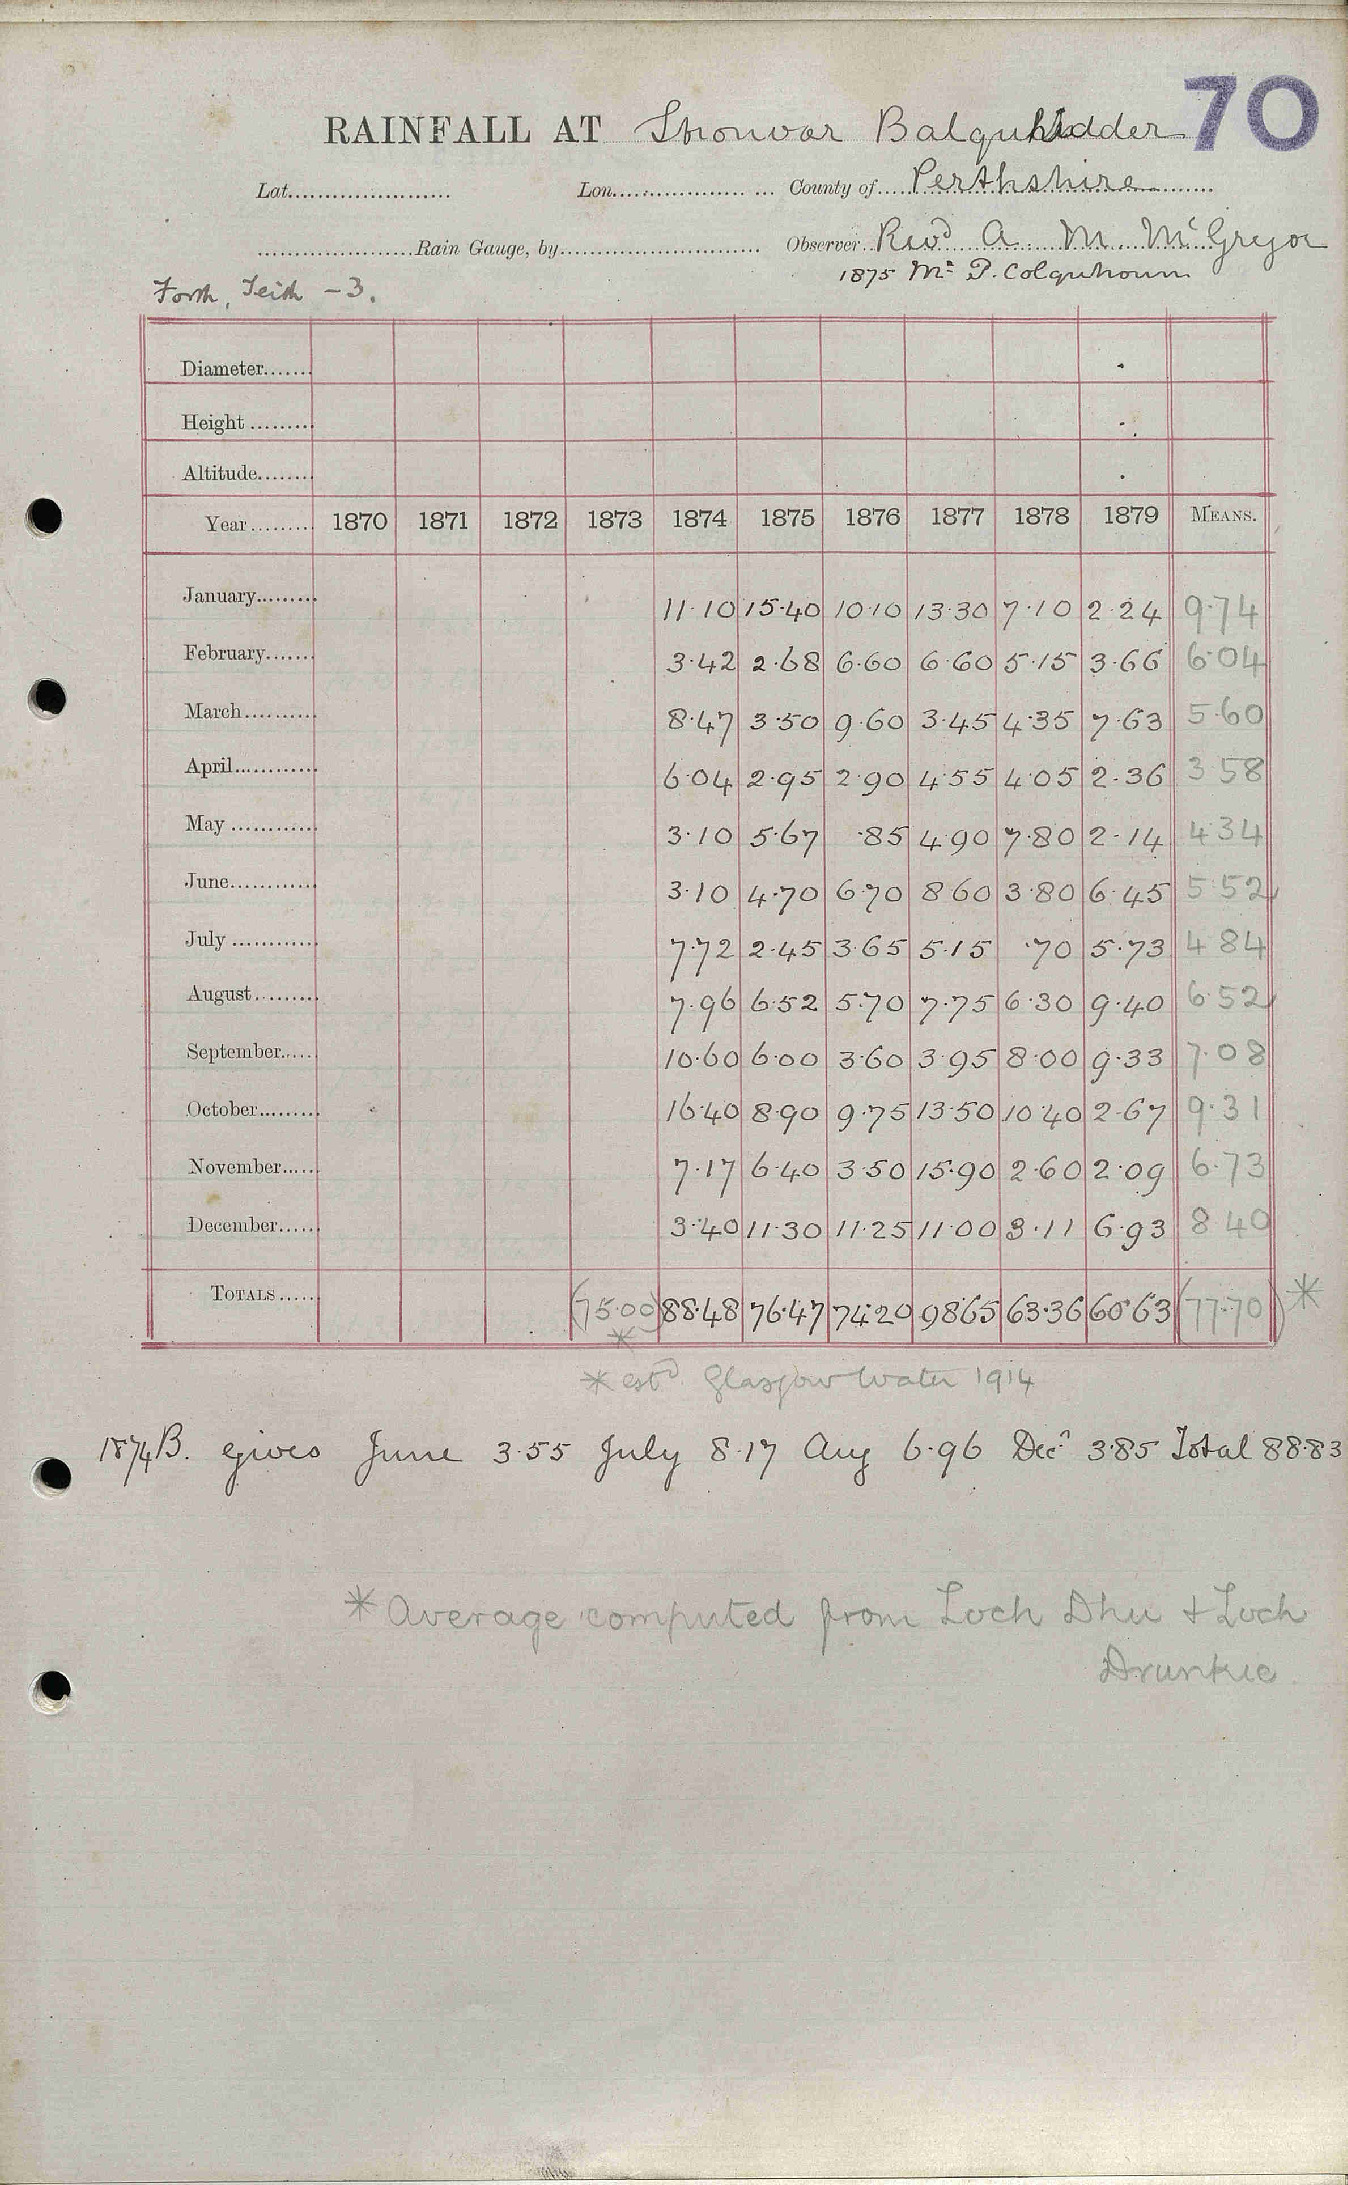 70
RAINFALL AT Stronvar Balquhidder
Lat. Lon. County of Perthshire
Rain Gauge, by Observer Revd A M McGregor
1875 Mr P. Colquhoun
Forth, Teith - 3.
Diameter
Height
Altitude
Year 1870 1871 1872 1873 1874 1875 1876 1877 1878 1879 MEANS.
January 11.10 15.40 10.10 13.30 7.10 2.24 9.74
February 3.42 2.68 6.60 6.60 5.15 3.66 6.04
March 8.47 3.50 9.60 3.45 4.35 7.63 5.60
April 6.04 2.95 2.90 4.55 4.05 2.36 3.58
May 3.10 5.67 .85 4.90 7.80 2.14 4.34
June 3.10 4.70 6.70 8.60 3.80 6.45 5.52
July 7.72 2.45 3.65 5.15 .70 5.73 4.84
August 7.96 6.52 5.70 7.75 6.30 9.40 6.52
September 10.60 6.00 3.60 3.95 8.00 9.33 7.08
October 16.40 8.90 9.75 13.50 10.40 2.67 9.31
November 7.17 6.40 3.50 15.90 2.60 2.09 6.73
December 3.40 11.30 11.25 11.00 3.11 6.93 8.40
TOTALS (75.00)* 88.48 76.47 74.20 98.65 63.36 60.63 (77.70)*
* estd. Glasgow Water 1914
1874 B. gives June 3.55 July 8.17 Aug 6.96 Decr 3.85 Total 88.83
* Average computed from Loch Dhu + Loch
Drunkie